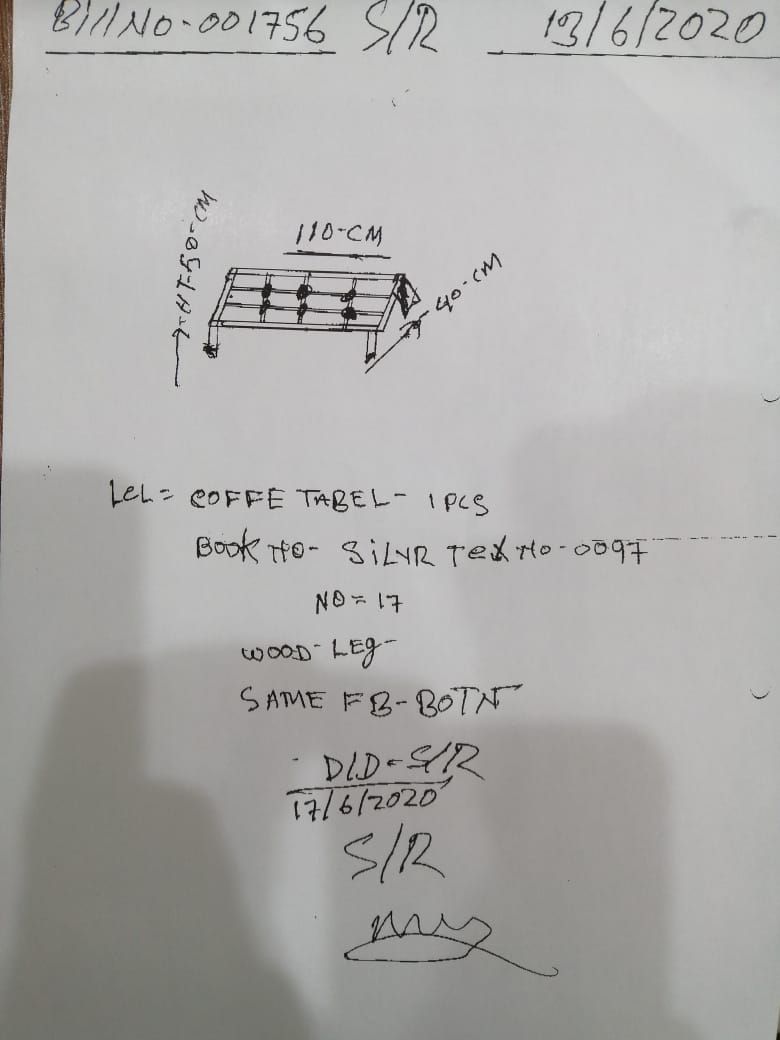 Bill NO-001756 S/R 13/6/2020
HT-50-CM
110-CM
40-CM
LEL= COFFE TABEL- 1 PCS
BOOK NO- SILVR TEX NO-0097
NO=17
WOOD-LEG-
SAME FB-BOTN
D/D=S/R
17/6/2020
S/R